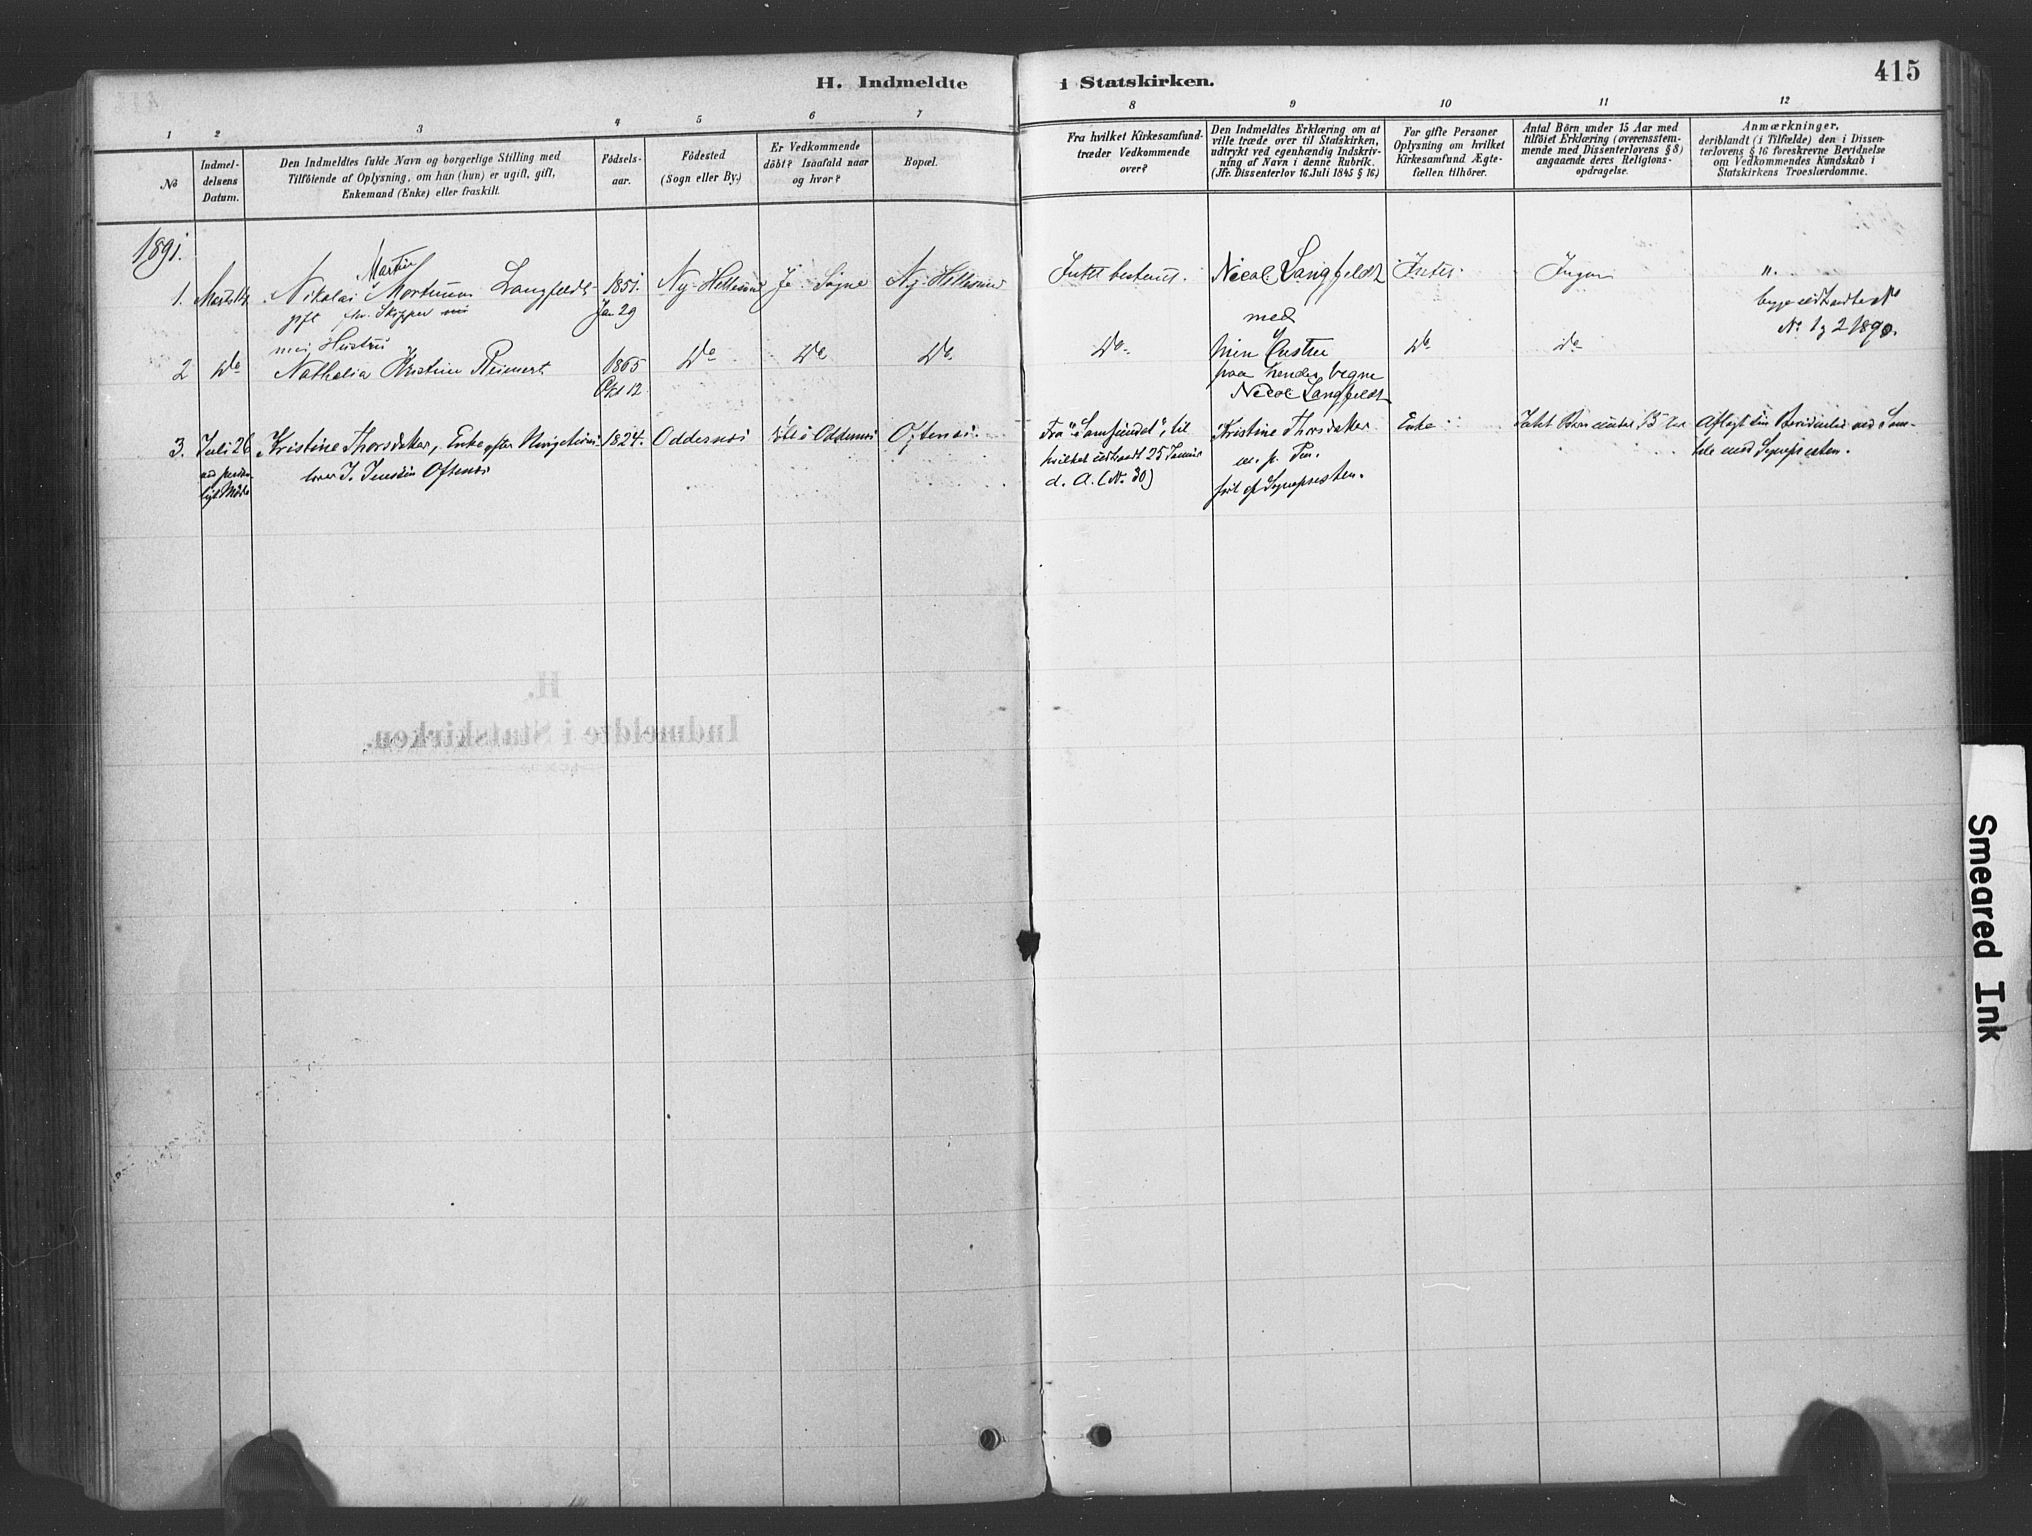 H. Indmeldte i Statskirken.
415
1 2 3 4 5 6 7 8 9 10 11 12
No
Indmel-
delsens
Datum.
Den Indmeldtes fulde Navn og borgerlige Stilling med
Tilföiende af Oplysning, om han (hun) er ugift, gift,
Enkemand (Enke) eller fraskilt.
Födsels-
aar.
Födested
(Sogn eller By.)
Er Vedkommende
döbt? Isaafald naar
og hvor?
Bopæl.
Fra hvilket Kirkesamfund-
træder Vedkommende
over?
Den Indmeldtes Erklæring om at
ville træde over til Statskirken,
udtrykt ved egenhændig Indskriv-
ning af Navn i denne Rubrik.
(Jfr. Dissenterlov 16. Juli 1845 § 16.)
For gifte Personer
Oplysning om hvilket
Kirkesamfund Ægte-
fællen tilhörer.
Antal Börn under 15 Aar med
tilföiet Erklæring (overensstem-
mende med Dissenterlovens § 8)
angaaende deres Religions-
opdragelse.
Anmærkninger,
deriblandt (i Tilfælde) den i Dissen-
terlovens § 16 foreskrevne Bevidnelse
om Vedkommendes Kundskab i
Statskirkens Troeslærdomme.
1891.
Martin
1. Nikolai Langfeldt
gift Skipper
1851.
Jan 29
Ny-Hellesund
Ja. Søgne
Ny-Hellesund
Intet bestemt.
Nicol. Langfeldt
med
Intet.
Ingen
"
No 1 og 2 1890.
Hustru
2 Do Nathalia Kristine Reinert
1865
Okt 12
Do
Do
Do
Do
Min Hustru
paa hendes vegne
Nicol Langfeldt
Do
Do
3. Juli 26 Kristine Thorsdatter, Enke efter
Oftenes
1824.
Oddernes
Oddernes
Oftenes.
Fra "Samfundet", til
hvilket udtraadt 25 Januar
d. A. (No. 30)
Kristine Thorsdatter
m. p. Pen.
Enke
Intet Barn under 15 Aar
Aflagt sin ved Sam-
tale med Sognepresten.
H.
Indmeldte i Statskirken.
Smeared Ink